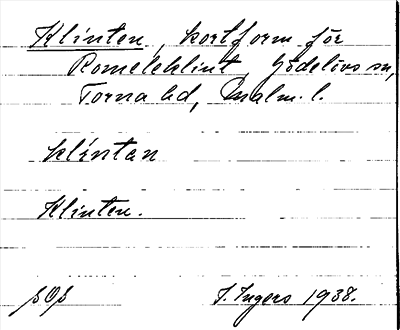 Klinten, kortform för
Romeleklint, Gödelövs sn,
Torna hd, Malm. l.
klintan
Klinten.
sOs
I. Ingers 1938.